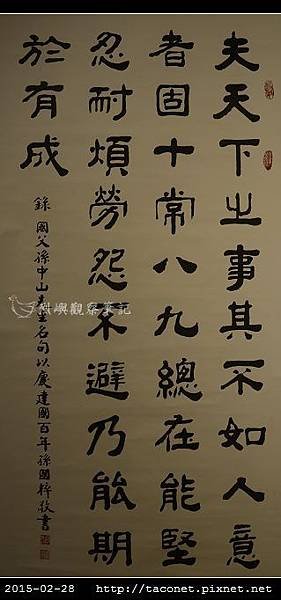 夫天下之事其不如人意
者固十常八九總在能堅
忍耐煩勞怨不避乃能期
於有成
錄 國父孫中山先生名句以慶建國百年孫國粹敬書
粉嶼觀察筆記
2015-02-28 http://taconet.pixnet.net